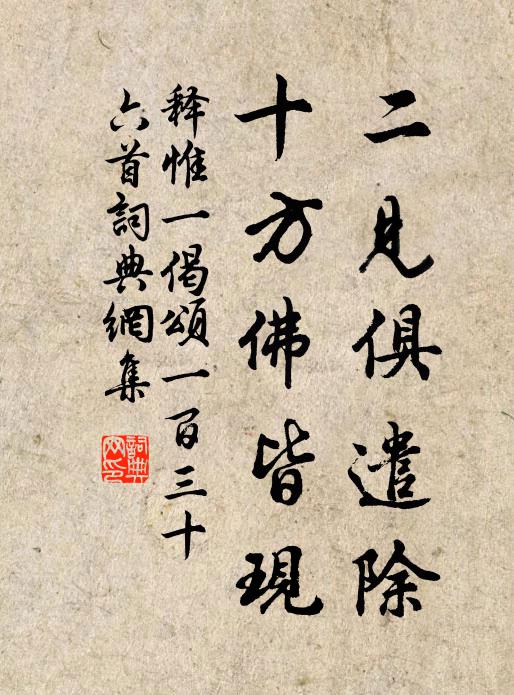 二見俱遣除
十方佛皆現
释惟一偈頌一百三十
六首詞典網集
詞典
网印